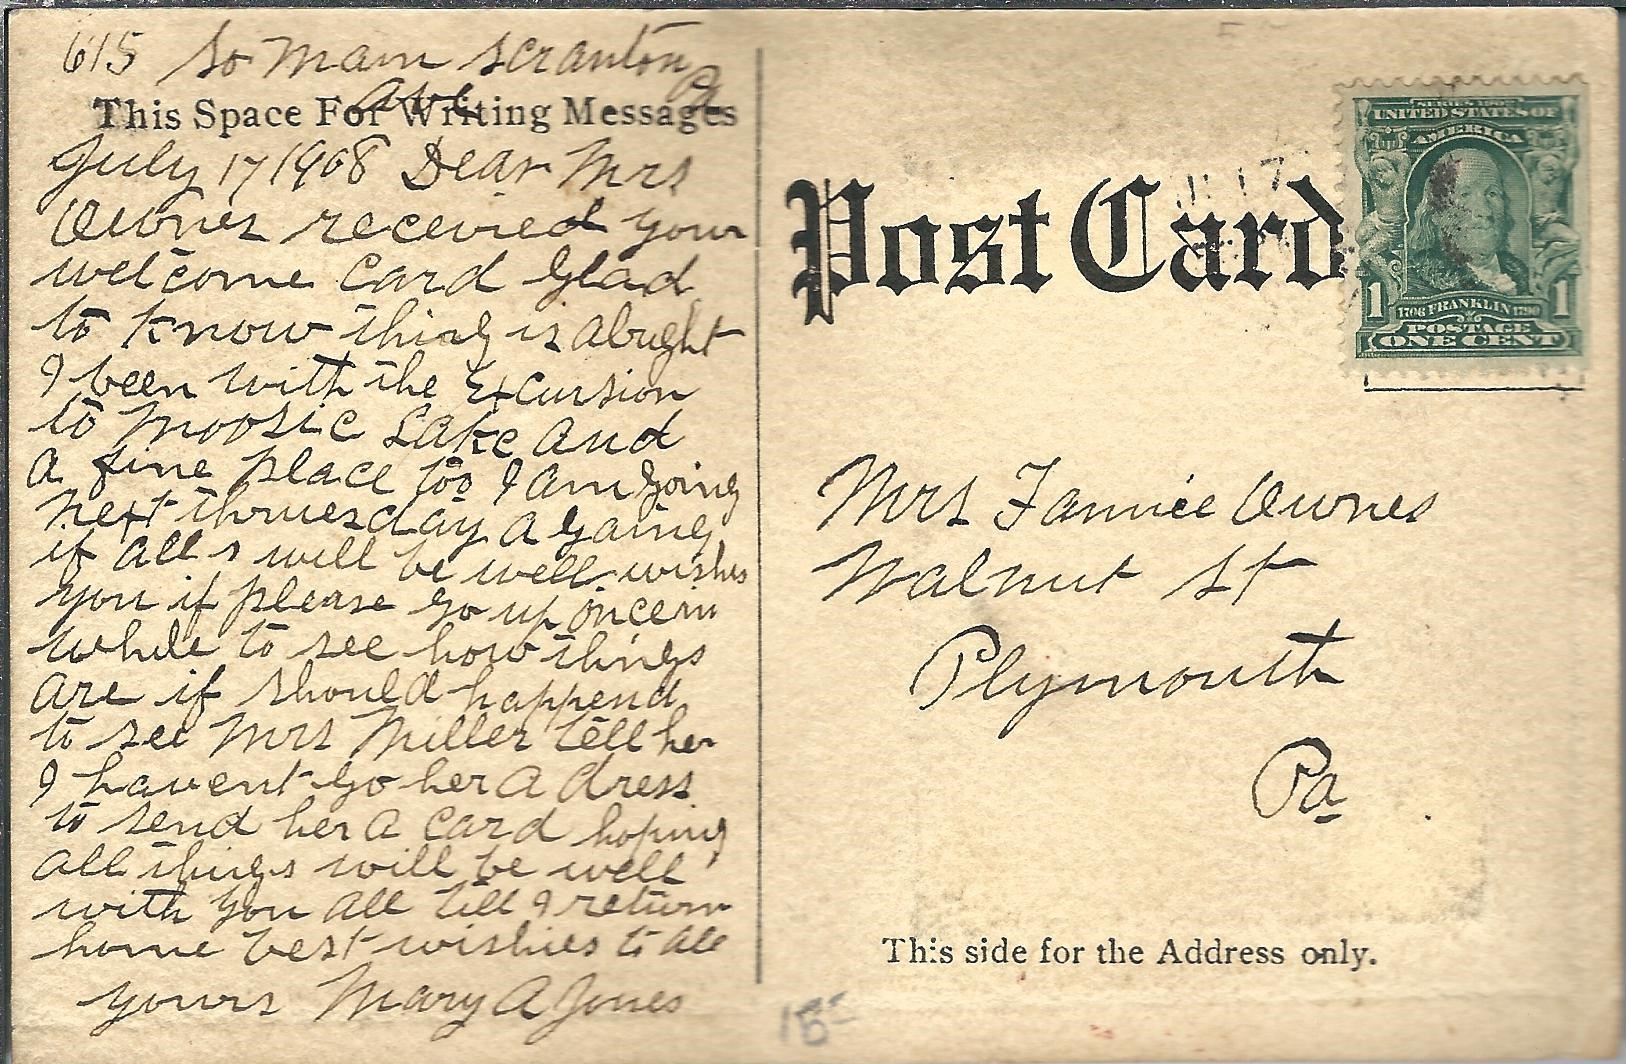 615 So Main Scranton
Ave Pa
This Space For Writing Messages
July 17 1908 Dear Mrs
Ownes received your
welcome card Glad
to know thing is alright
I been with the Excursion
to Moosic Lake and
a fine place too I am going
next thruesday a gaing
if all s will be well wishes
you if please go up once in
while to see how things
are if should happend
to see Mrs Miller tell her
I havent go her a dress
to send her a card hoping
all things will be well
with you all till I return
home best wishies to all
yours Mary A Jones
Post Card
SERIES 1902
UNITED STATES OF
AMERICA
1706 FRANKLIN 1790
1 1
POSTAGE
ONE CENT
Mrs Fannie Ownes
Walnut St
Plymouth
Pa
This side for the Address only.